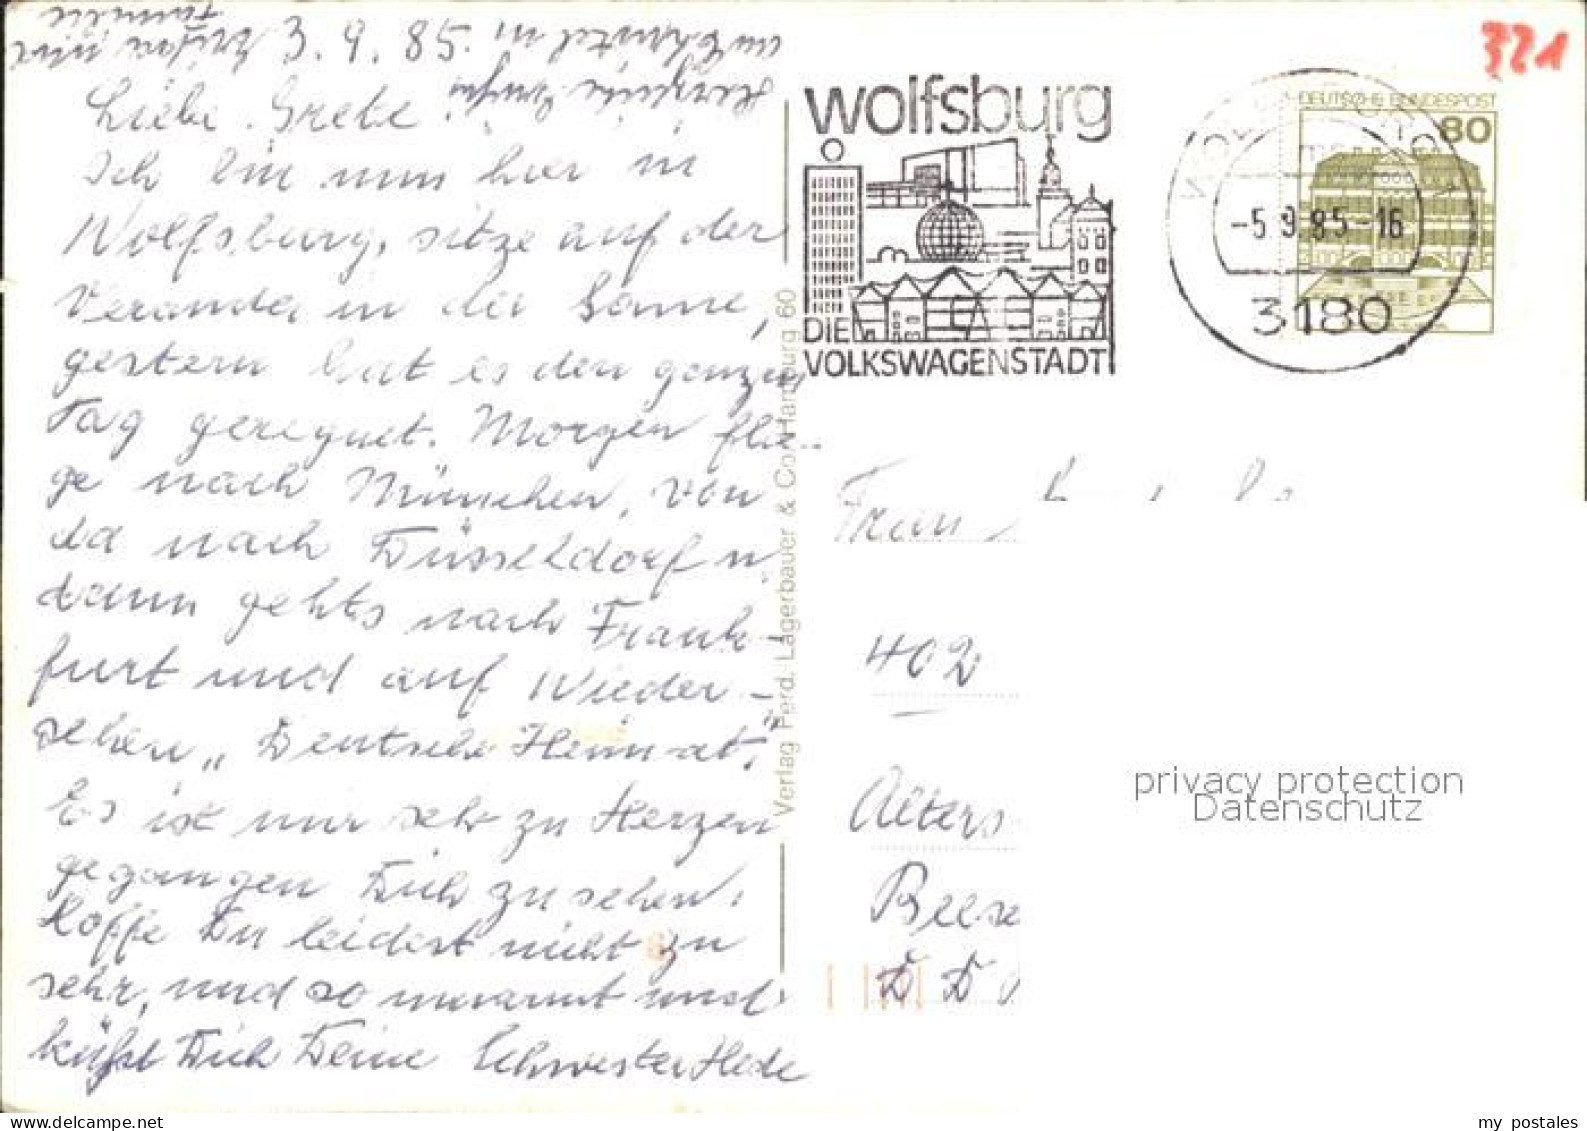 3. 9. 85.
Liebe Grete!
Ich bin nun hier in
Wolfsburg, sitze auf der
Veranda, in der Sonne,
gestern hat es den ganzen
Tag geregnet. Morgen flie-
ge nach München, von
da nach Düsseldorf u
dann gehts nach Frank
furt und auf Wieder-
sehen „Deutsche Heimat".
Es ist mir sehr zu Herzen
gegangen Dich zu sehen.
Hoffe Du leidest nicht zu
sehr, und so umarmt und
küßt Dich Deine Schwester Hede
Herzliche Grüße
an Christel u
Familie
Verlag Ferd. Lagerbauer & Co. Hamburg 60
wolfsburg
DIE
VOLKSWAGENSTADT
321
DEUTSCHE BUNDESPOST
80
WOLFSBURG
-5.9.85-16
3180
Frau
402
Alters
Beese
D D
privacy protection
Datenschutz
my postales